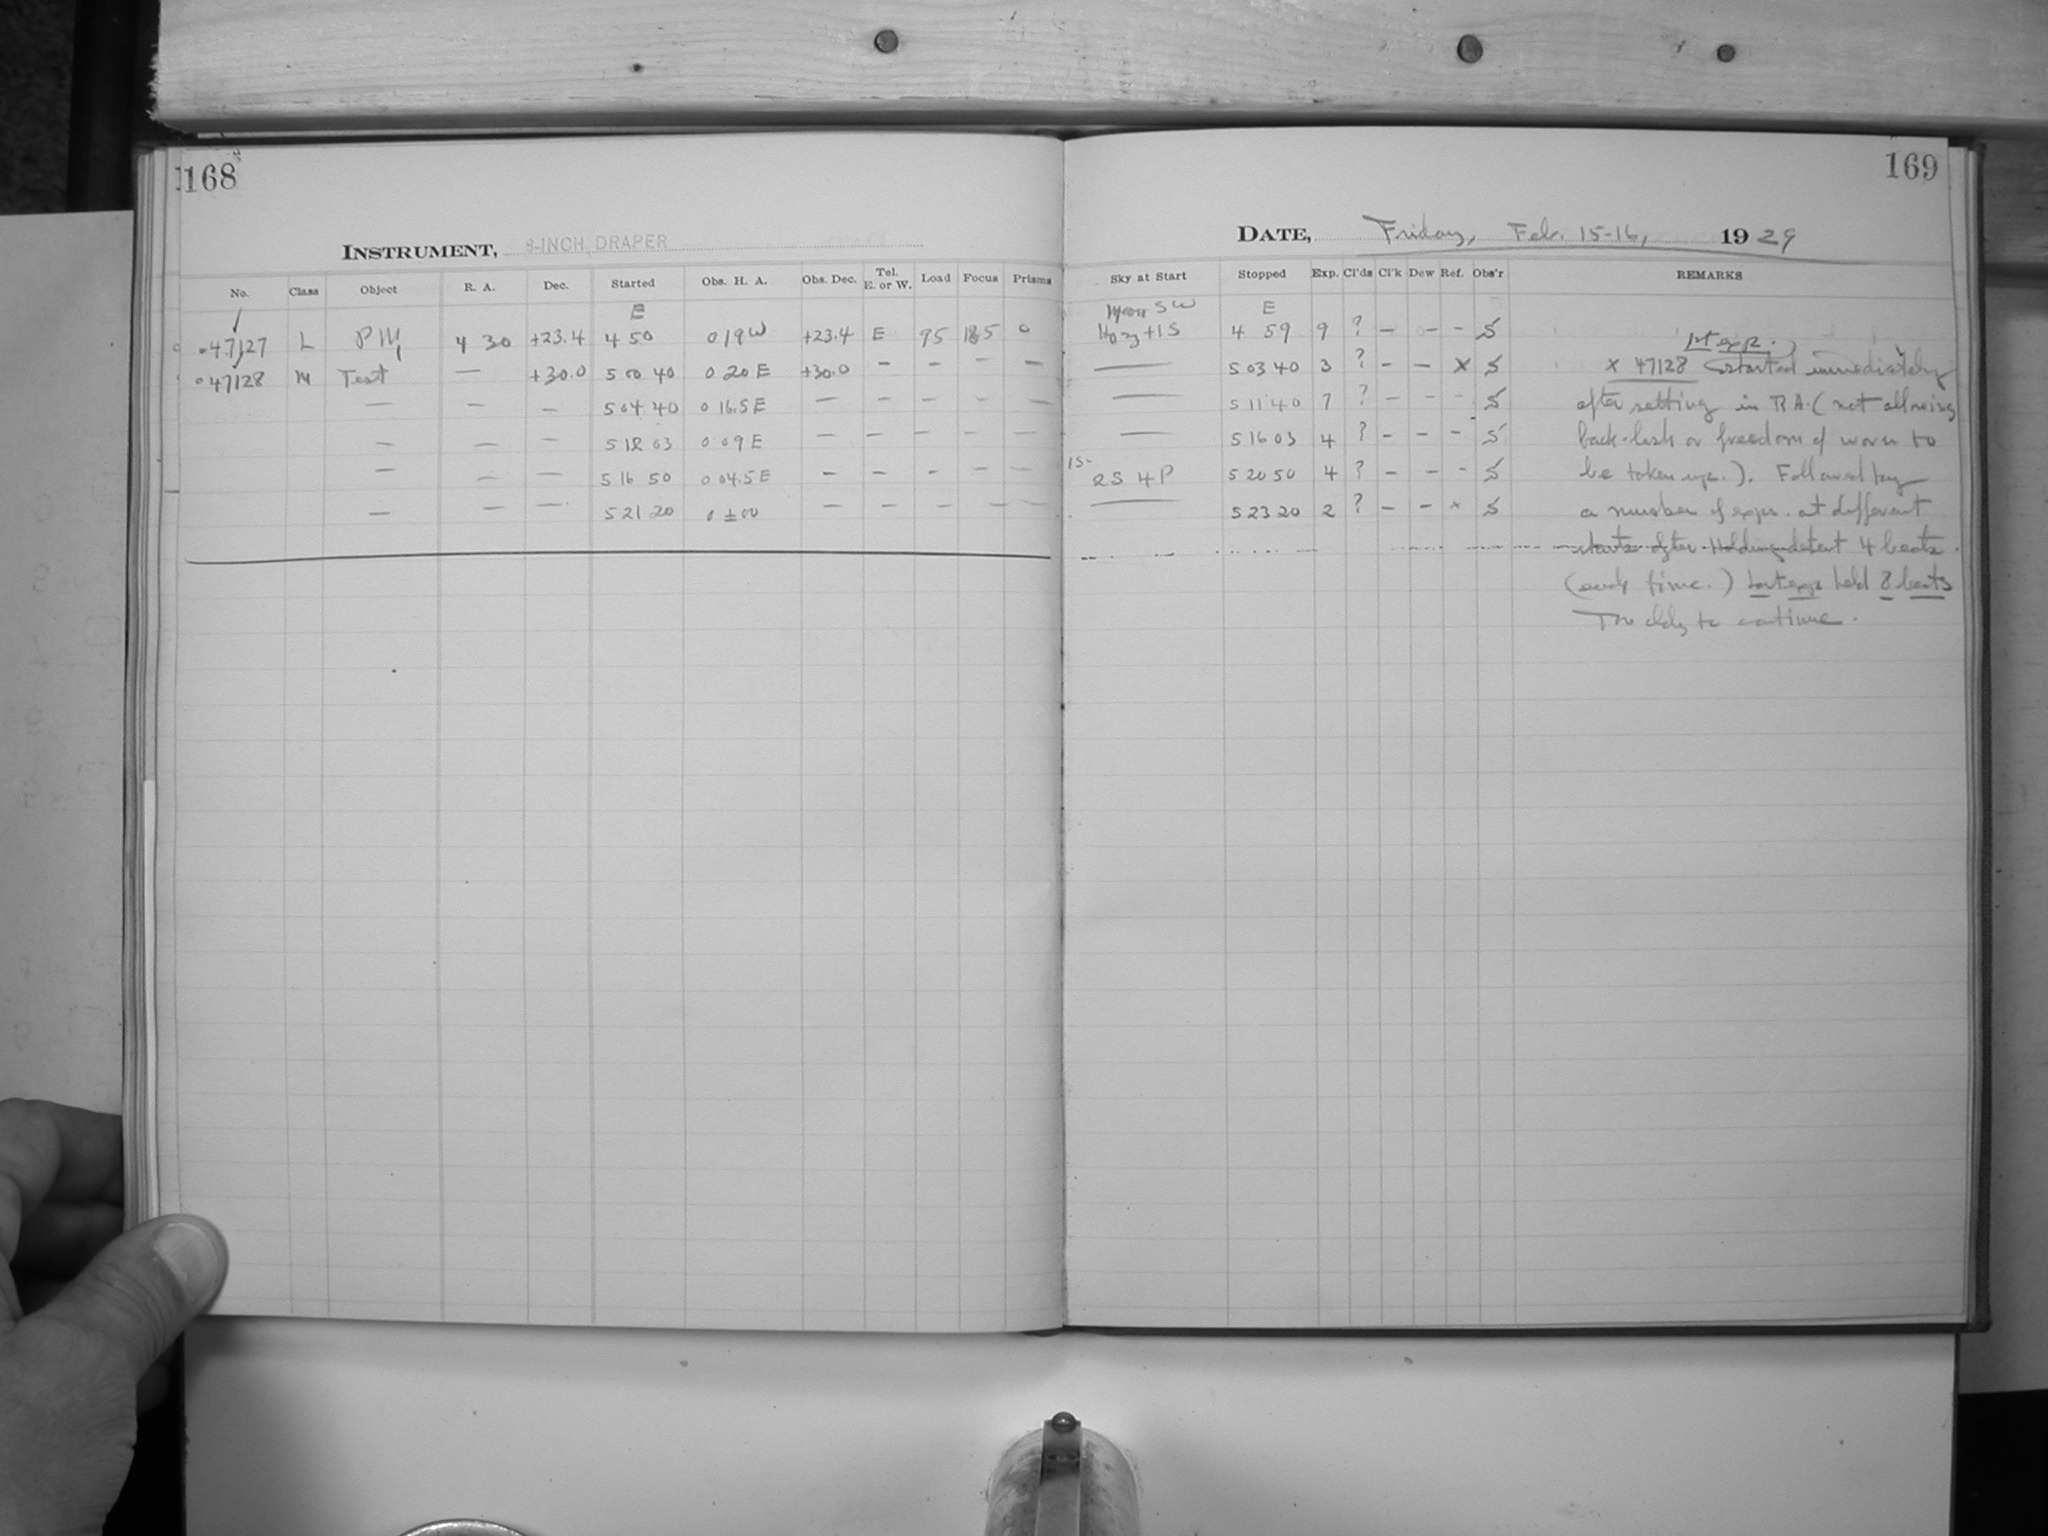 168
INSTRUMENT, 8-INCH DRAPER
No. Class Object R. A. Dec. Started Obs. H. A. Obs. Dec. Tel. E. or W. Load Focus Prisms
E
47127 L 4 30 +23.4 4 50 0 19 W +23.4 E 95 0
47128 M Test — +30.0 5 00 40 0 20 E +30.0 — — — —
— — — 5 04 40 0 16.5 E — — — — —
— — — 5 12 03 0 09 E — — — — —
— — — 5 16 50 0 04.5 E — — — — —
— — — 5 21 20 0 ± 00 — — — — —
169
DATE, Friday, Feb. 15-16, 1929
Sky at Start Stopped Exp. Cl'ds Cl'k Dew Ref. Obs'r REMARKS
Moon SW E
Hazy + 1 S 4 59 9 ? — — — S 1st exp.
— 5 03 40 3 ? — — x S x 47128 started immediately
— 5 11 40 7 ? — — — S after setting in R.A. (not allowing
— 5 16 03 4 ? — — — S back-lash or freedom of worm to
15-
2 S 4 P 5 20 50 4 ? — — — S be taken up.). Followed by
— 5 23 20 2 ? — — x S a number of exps. at different
starts after holding detent 4 beats
(each time.) Last exp held 8 beats
Too cldy to continue.